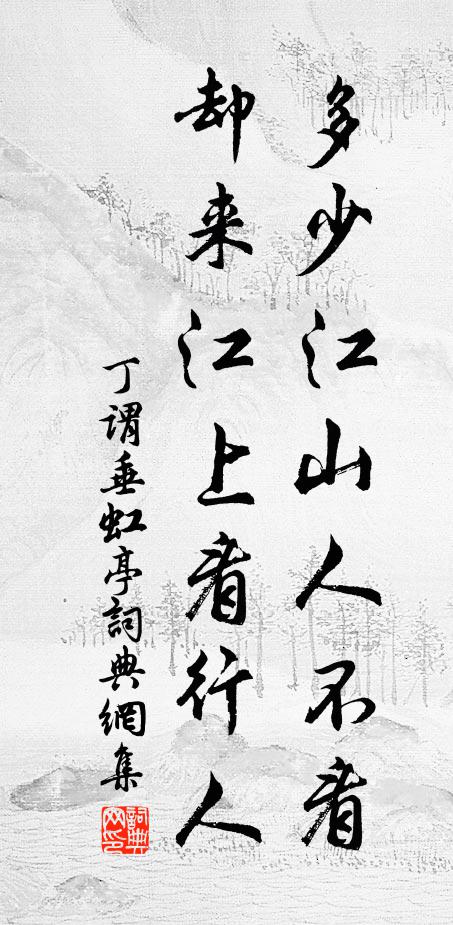 多少江山人不看
却来江上看行人
丁謂垂虹亭詞典網集
詞典网印